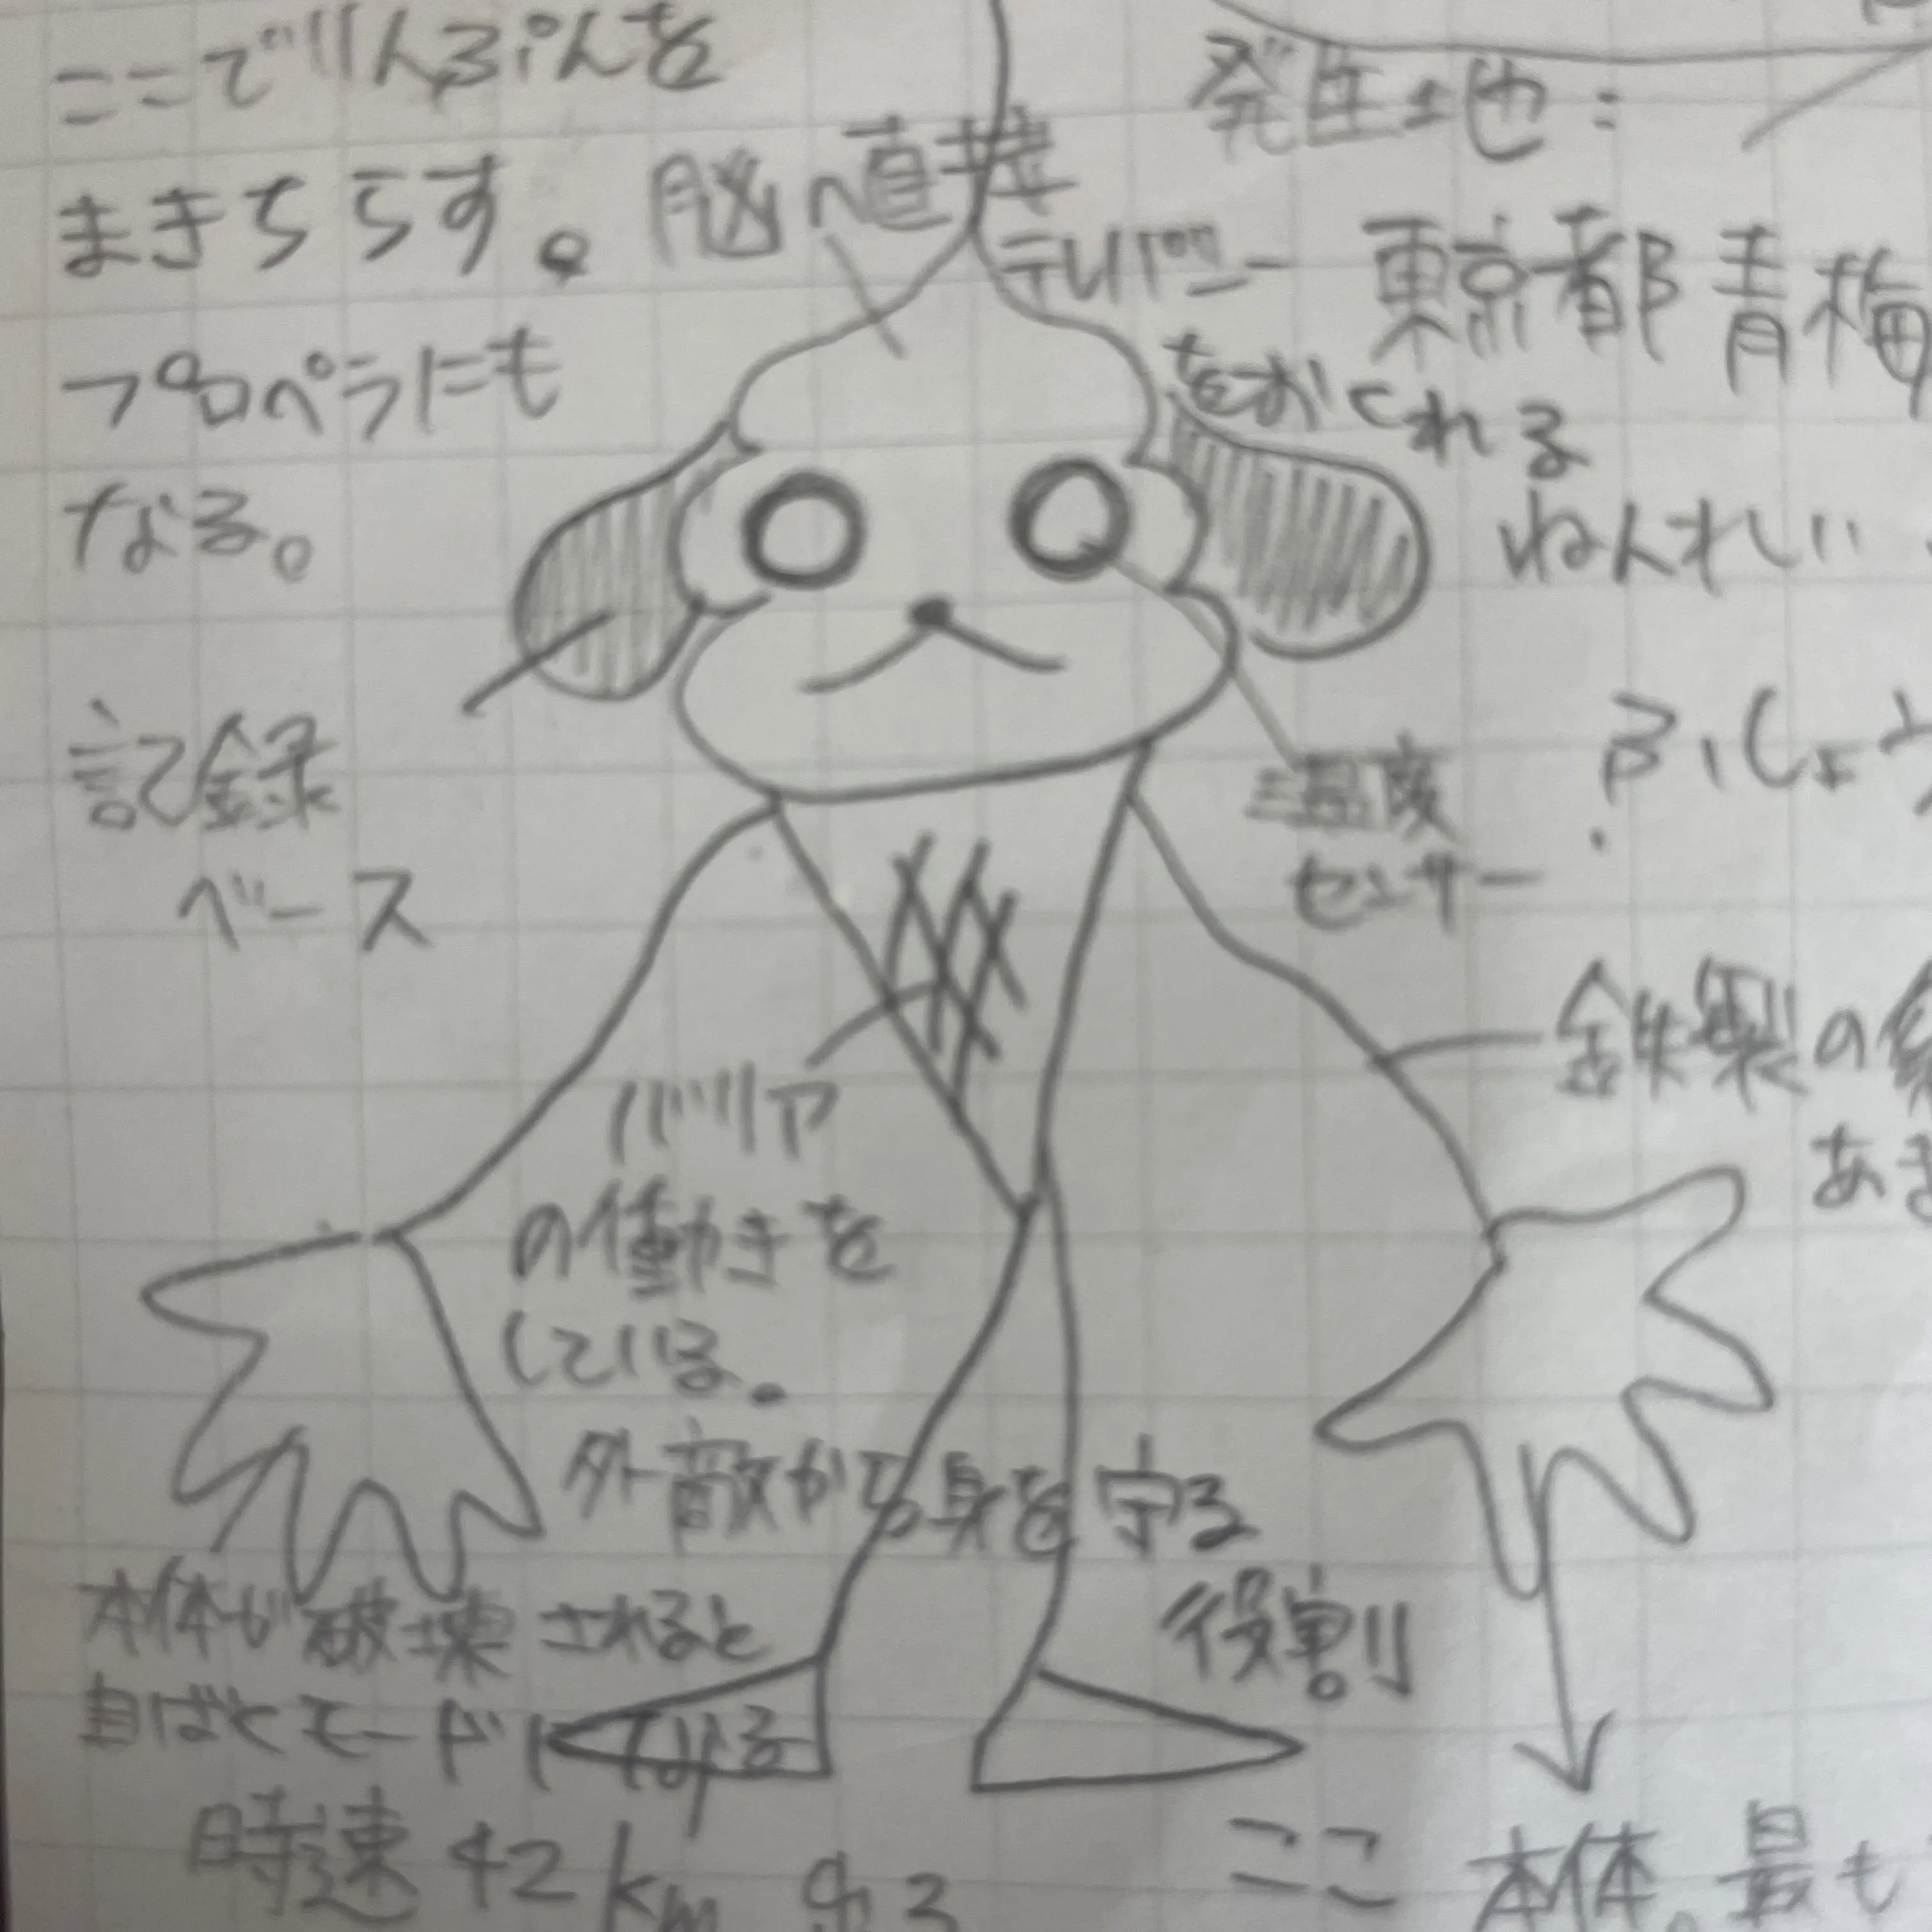 ここでりんぷんを
まきちらす。
プロペラにも
なる。
脳へ直接
テレパシー
をおくれる
発生地:
東京都青梅
ねんれい
記録
ベース
温度
センサー
鉄製の
バリア
の働きを
している。
外敵から身を守る
役割
本体が破壊されると
自ばくモードになる
時速42km出る
ここ本体。最も